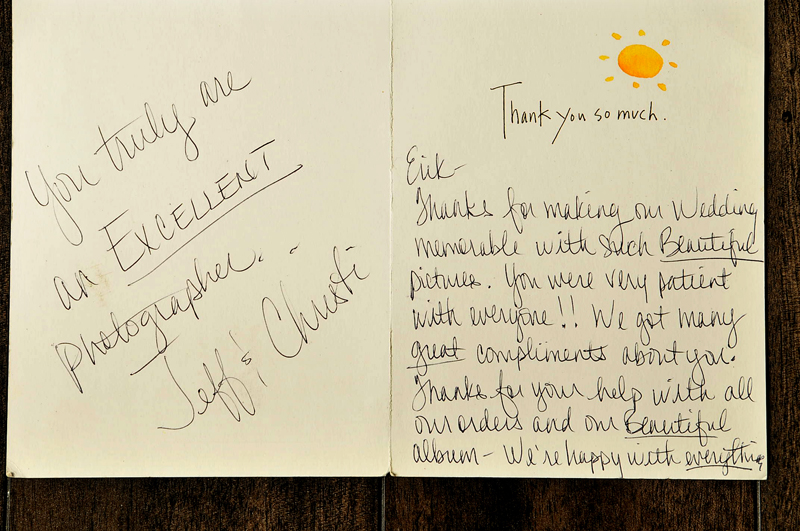 You truly are
an EXCELLENT
photographer...
Jeff & Christi
Thank you so much.
Erik-
Thanks for making our Wedding
memorable with such Beautiful
pictures. You were very patient
with everyone!! We got many
great compliments about you.
Thanks for your help with all
our orders and our Beautiful
album - We're happy with everything